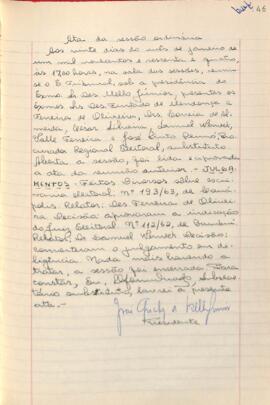 46
Ata da sessão ordinária
Aos vinte dias do mês de janeiro de
um mil novecentos e sessenta e quatro,
às 17:00 horas, na sala das sessões, reuniu-
se o E. Tribunal, sob a presidência do
Exmo. Sr. Des. Mello Júnior, presentes os
Exmos. Srs. Des. Furtado de Mendonça e
Ferreira de Oliveira, Drs. Correia de Al-
meida, Cesar Silveira, Samuel Werneck,
Valle Ferreira e José Pinto Renó, Pro-
curador Regional Eleitoral, substituto.
Aberta a sessão, foi lida e aprovada
a ata da reunião anterior. - JULGA-
MENTOS - Feitos diversos sôbre esca-
eleitoral nº 193/63, de
Relator: Des. Ferreira de Olivei-
ra. Decisão: aprovaram a indicação
do Juiz Eleitoral. Nº 112/62, de Bambuí.
Relator, Dr. Samuel Werneck. Decisão:
converteram o julgamento em di-
ligência. Nada mais havendo a
tratar, a sessão foi encerrada. Para
constar, Eu, Secre-
tário substituto, lavrei a presente
ata. -
Presidente